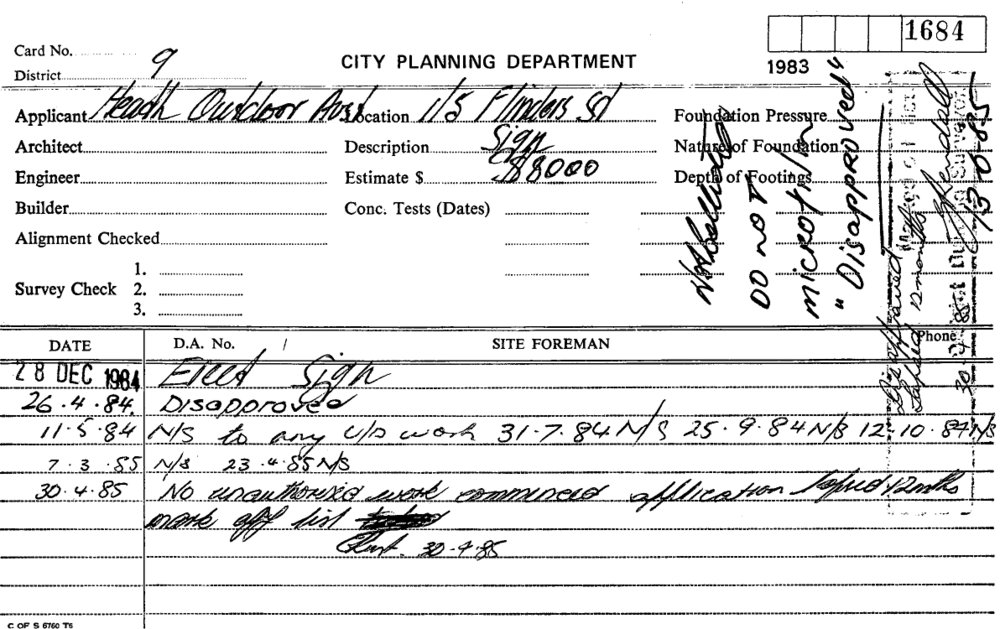 1684
Card No.
1983
District 9
CITY PLANNING DEPARTMENT
Applicant Heath Outdoor Aust Location 1/5 Flinders St Foundation Pressure
Architect Description Sign Nature of Foundation
Engineer Estimate $ $8000 Depth of Footings
Builder Conc. Tests (Dates)
Alignment Checked
1.
Survey Check 2.
3.
DO NOT
microfilm
"Disapproved"
Disapproved
Lapsed 12 months
30
13.8.85
DATE D.A. No. / SITE FOREMAN Phone
28 DEC 1984 Erect Sign
26.4.84. Disapproved
11.5.84 N/S to any U/A work 31.7.84 N/S 25.9.84 N/S 12.10.84 N/S
7.3.85 N/S 23.4.85 N/S
30.4.85 No unauthorised work commenced application lapsed 12 mths
mark off list
30-4-85
C OF S 6760 T5